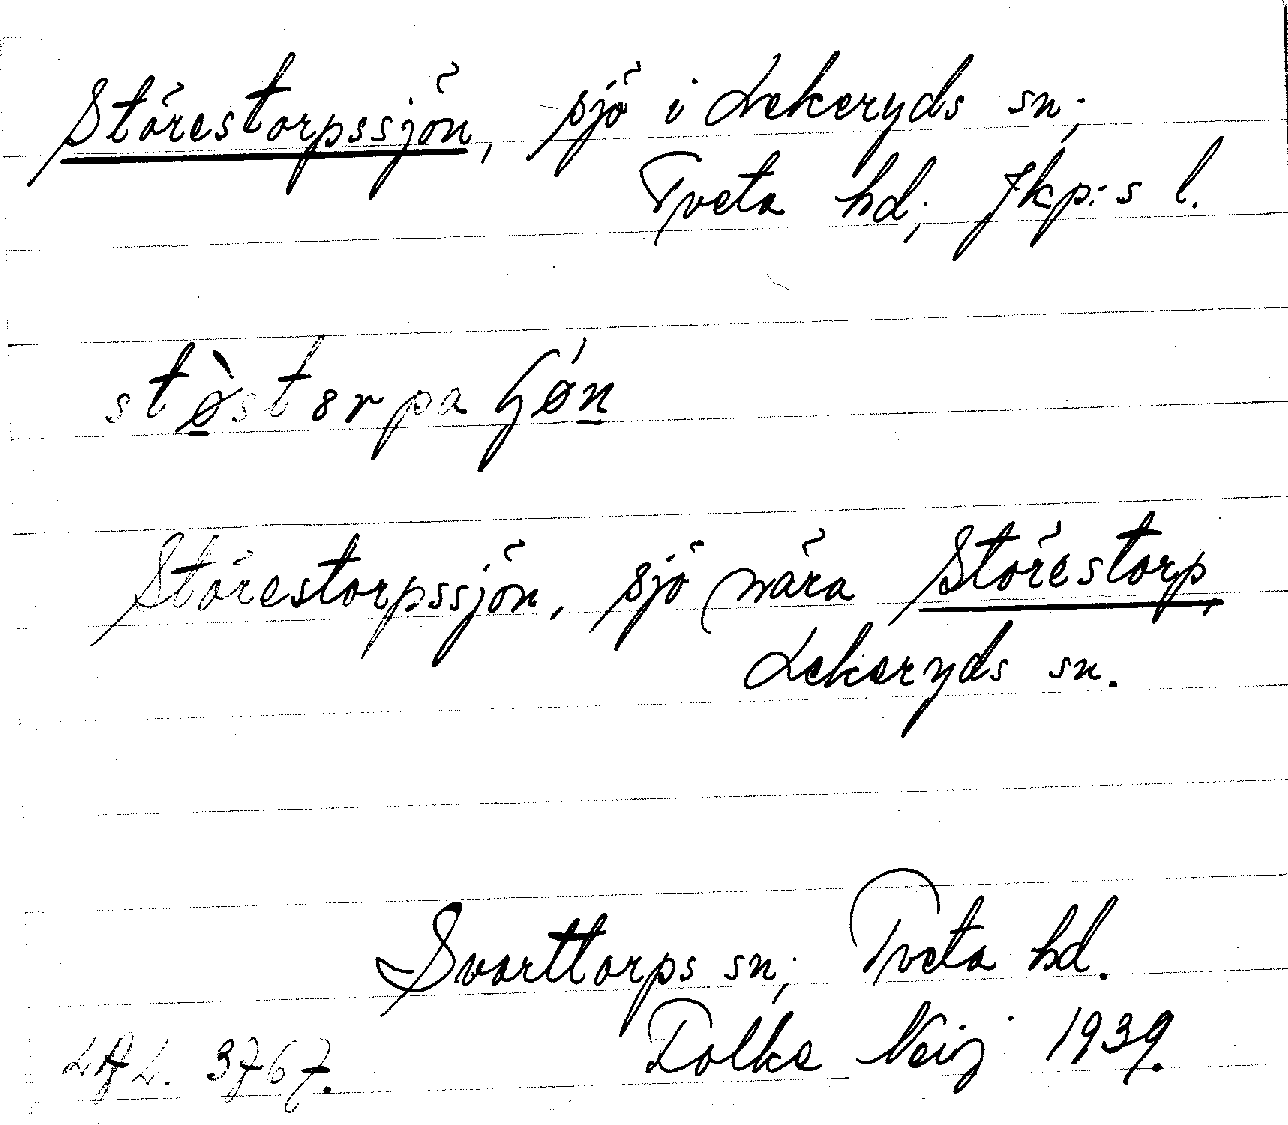 Störestorpssjön, sjö i Lekeryds sn;
Tveta hd; Jkp:s l.
Störestorpssjön, sjö nära Störestorp,
Lekeryds sn.
Svarttorps sn; Tveta hd.
LAL. 3767. Tolke Neij 1939.